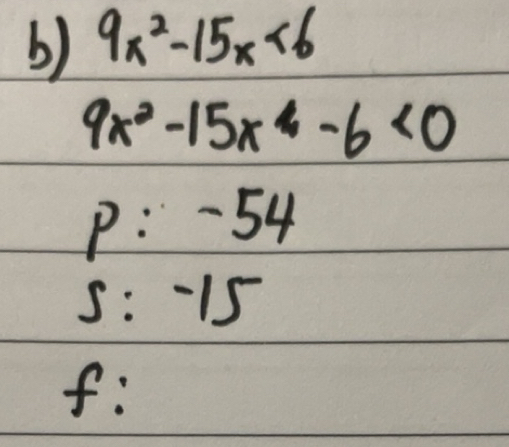 b) 9x²-15x<6
9x²-15x -6<0
p: -54
s: -15
f: